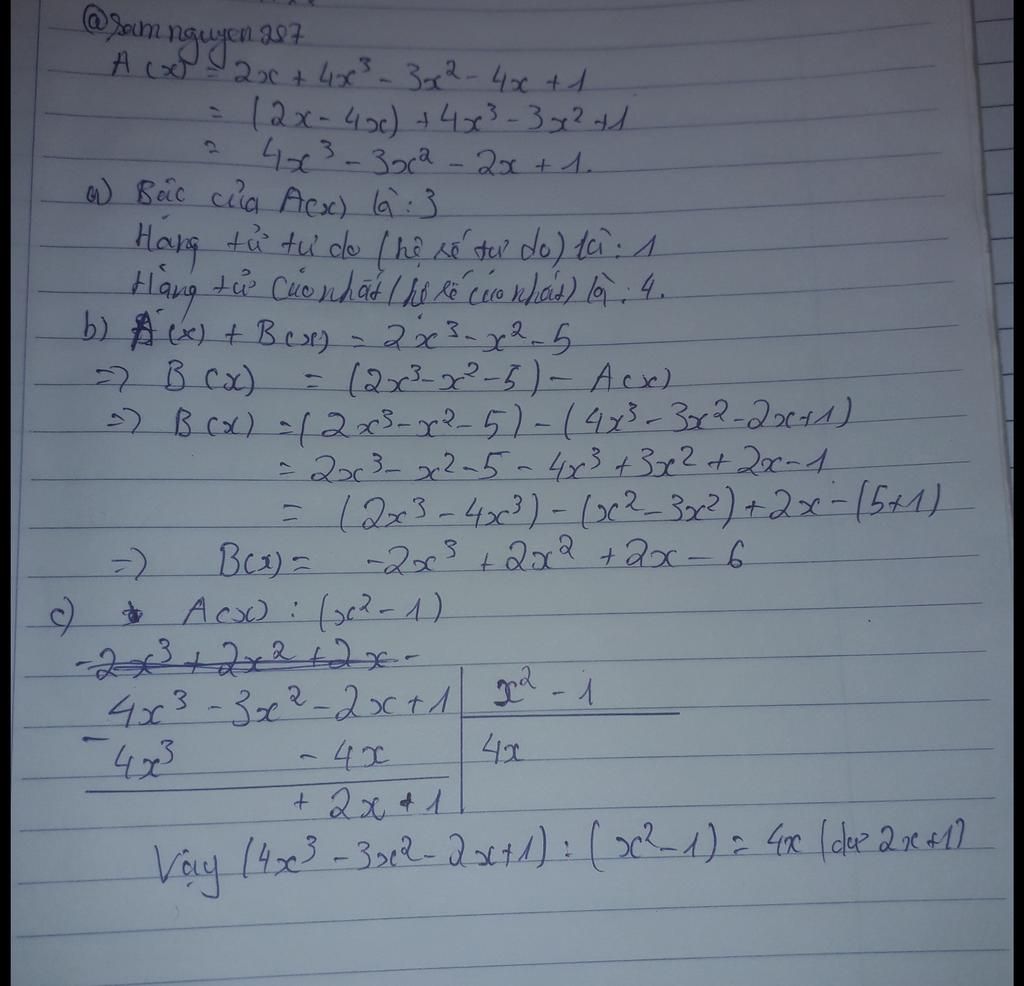 @samnguyen287
A(x) = 2x + 4x³ - 3x² - 4x + 1
= (2x - 4x) + 4x³ - 3x² + 1
= 4x³ - 3x² - 2x + 1.
a) Bậc của A(x) là: 3
Hạng tử tự do (hệ số tự do) là: 1
Hạng tử cao nhất (hệ số cao nhất) là: 4.
b) A(x) + B(x) = 2x³ - x² - 5
=> B(x) = (2x³ - x² - 5) - A(x)
=> B(x) = (2x³ - x² - 5) - (4x³ - 3x² - 2x + 1)
= 2x³ - x² - 5 - 4x³ + 3x² + 2x - 1
= (2x³ - 4x³) - (x² - 3x²) + 2x - (5+1)
=> B(x) = -2x³ + 2x² + 2x - 6
c) A(x) : (x² - 1)
-2x³ + 2x² + 2x -
4x³ - 3x² - 2x + 1 | x² - 1
- 4x³ - 4x | 4x
+ 2x + 1
Vậy (4x³ - 3x² - 2x + 1) : (x² - 1) = 4x (dư 2x + 1)